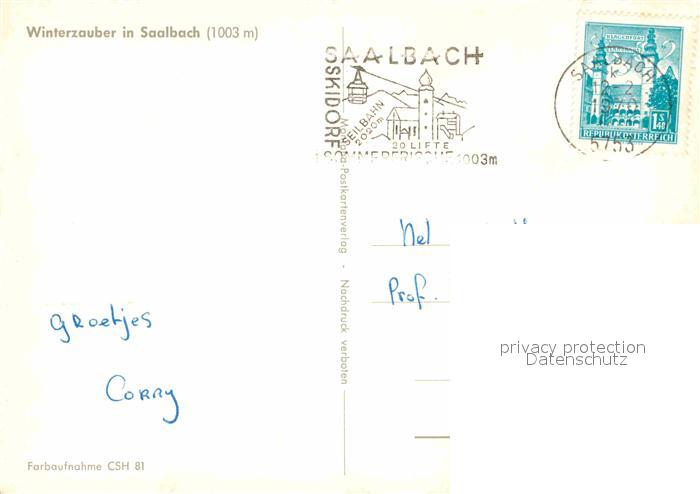 Winterzauber in Saalbach (1003 m)
SAALBACH
SKIDORF
SEILBAHN
2020m
20 LIFTE
SOMMERFRISCHE 1003m
SAALBACH
12. 2.
5753
KLAGENFURT
1S40
REPUBLIK ÖSTERREICH
Postkartenverlag · Nachdruck verboten
Nel
Prof.
privacy protection
Datenschutz
Groetjes
Corry
Farbaufnahme CSH 81